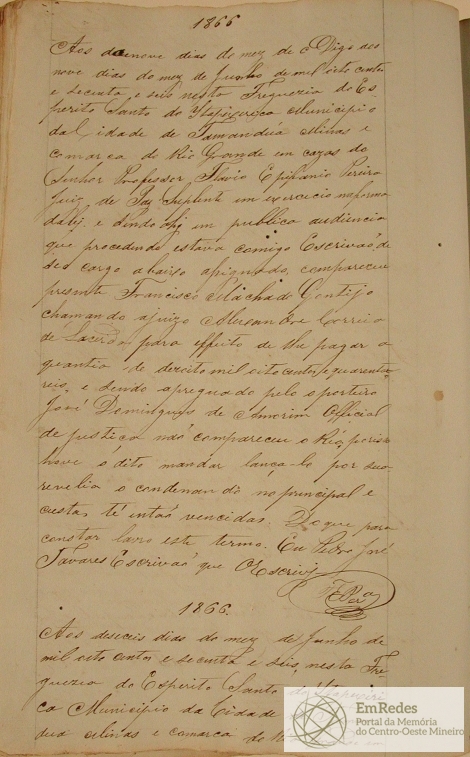 1866
Aos dezenove dias do mez de Digo des
nove dias do mez de Junho de mil oito centos
e secenta e seis nesta Freguezia do Es-
perito Santo do Itapicirica Municipio
da Cidade de Tamanduá Minas e
comarca do Rio Grande em cazas do
Senhor Professor Flavio Epifanio Pereira
Juiz de Paz Suplente em exercicio na forma
da lei e sendo ahi em publica audiencia
que procedendo estava comigo Escrivaõ de
seo cargo abaixo acignado, compareceu
presente Francisco Machado Gontijo
chamando a juizo Alexandre Correia
de Lacerda para effeito de lhe pagar a
quantia de dezoito mil oito centos e quarenta
reis, e sendo apregoado pelo o porteiro
José Domingues de Amorim Official
de justica naõ compareceu o Réo, por isso
houve o dito mandar lança-lo por sua
revelia o condenando no principal e
custas té entaõ vencidas. Do que para
constar lavro este termo. Eu Pedro José
Tavares Escrivaõ que o Escrivi
1866.
Aos deseceis dias do mez de Junho de
mil oito centos e secenta e seis, nesta Fre-
guezia do Espirito Santo do Itapeciri
ca Municipio da Cidade
dua Minas e comarca do
EmRedes
Portal da Memória
do Centro-Oeste Mineiro